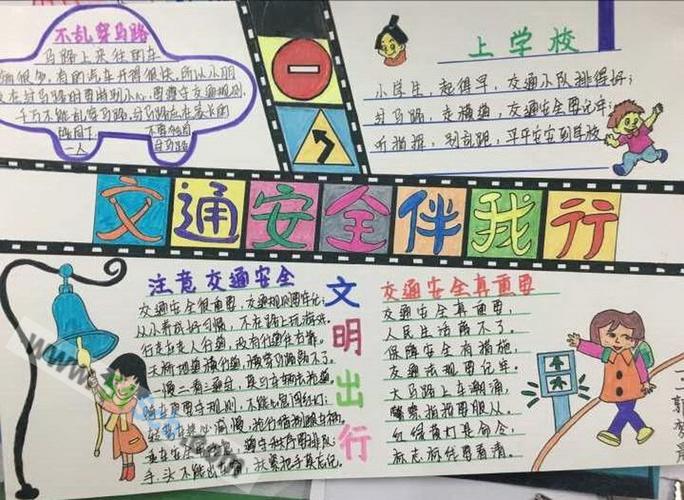 不乱穿马路
马路上来往的车
辆很多,有的汽车开得很快,所以小朋
友在过马路时要特别小心,要遵守交通规则,
千万不能乱穿马路,过马路应在家长的
陪同下
不要独自
一人
过马路
上学校
小学生,起得早,交通小队排得好;
过马路,走横道,交通安全要记牢;
听指挥,别乱跑,平平安安到学校
交通安全伴我行
注意交通安全
交通安全很重要,交通规则要牢记,
从小养成好习惯,不在路上玩游戏。
行走应走人行道,没有行道往右靠,
天桥地道横行道,横穿马路离不了。
一慢二看三通过,莫与车辆去抢道。
骑车更要守规则,不能
遵守秩序要排队;
手、头不能出 扶紧把手莫忘记。
文明出行
交通安全真重要
交通安全真重要,
人民生活离不了。
保障安全有措施,
交通法规要记牢。
大马路上车潮涌,
警察指挥要服从。
红绿黄灯是命令,
标志前线要看清。